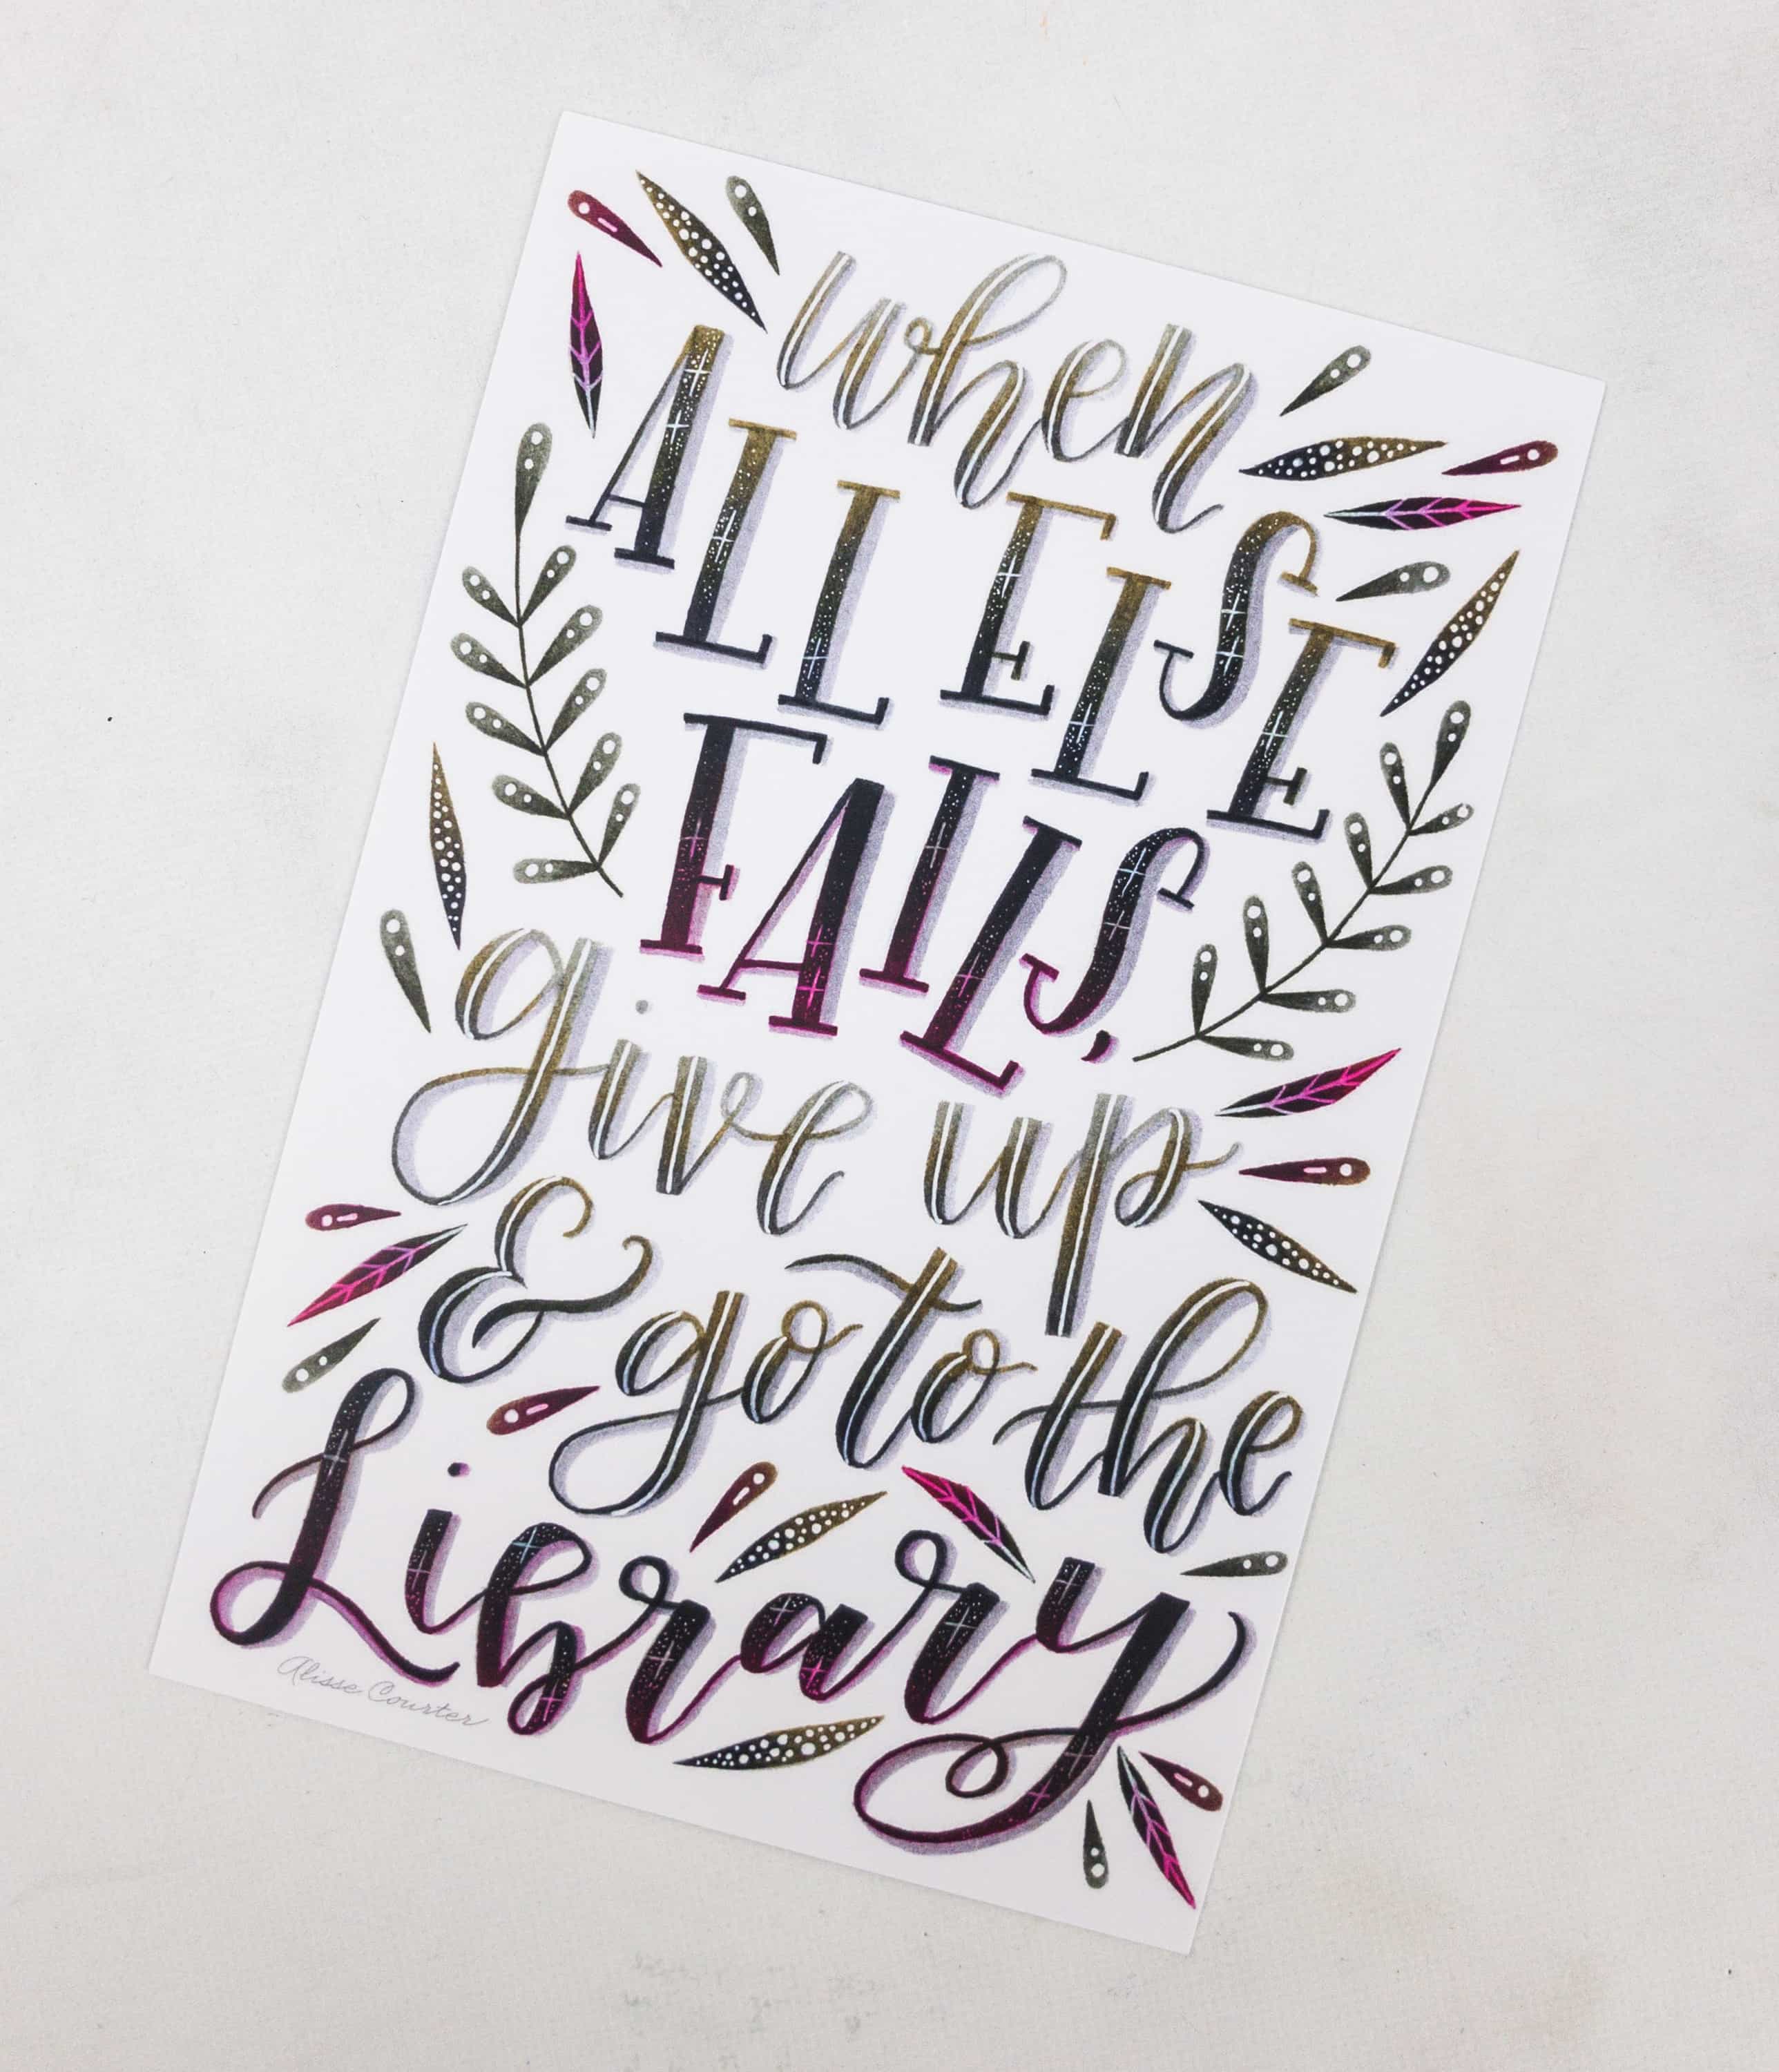 when
ALL ELSE
FAILS,
give up
& go to the
Library
Alisse Courter